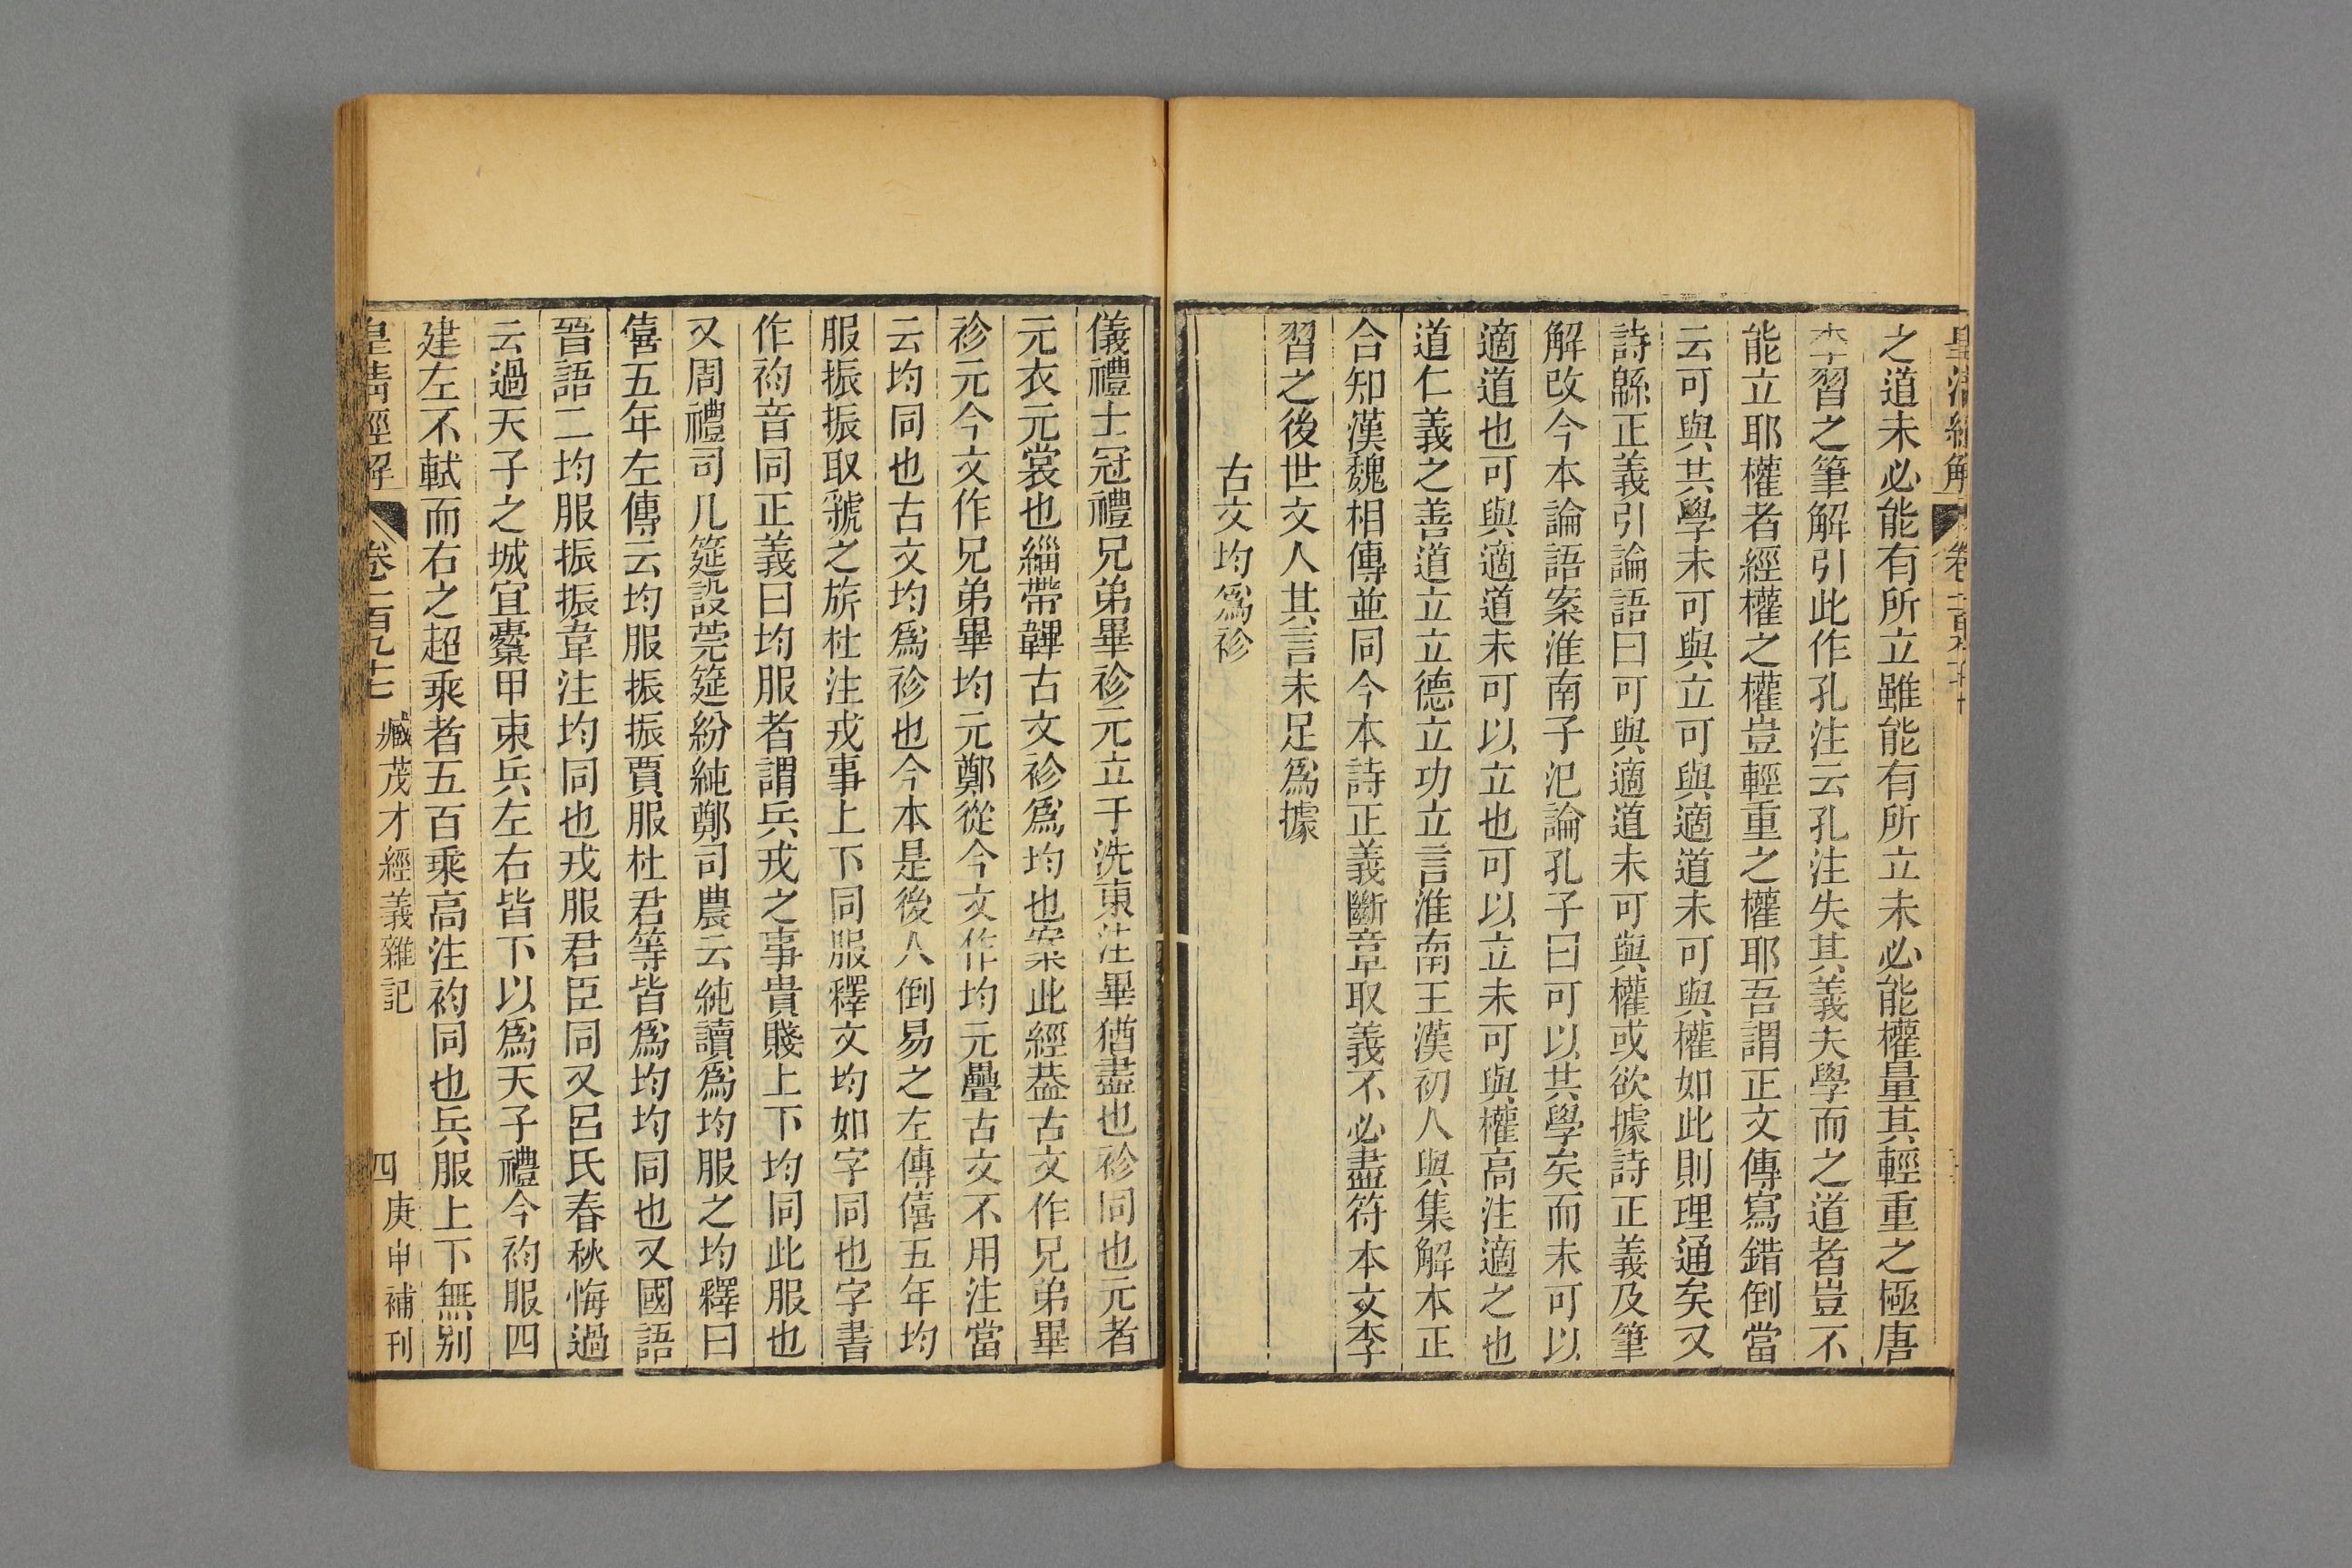 皇清經解 卷
之道未必能有所立雖能有所立未必能權量其輕重之極唐
李習之筆解引此作孔注云孔注失其義夫學而之道者豈不
能立耶權者經權之權豈輕重之權耶吾謂正文傳寫錯倒當
云可與共學未可與立可與適道未可與權如此則理通矣又
詩緜正義引論語曰可與適道未可與權或欲據詩正義及筆
解改今本論語案淮南子氾論孔子曰可以共學矣而未可以
適道也可與適道未可以立也可以立未可與權高注適之也
道仁義之善道立立德立功立言淮南王漢初人與集解本正
合知漢魏相傳並同今本詩正義斷章取義不必盡符本文李
習之後世文人其言未足爲據
古文均爲袗
儀禮士冠禮兄弟畢袗元立于洗東注畢猶盡也袗同也元者
元衣元裳也緇帶韠古文袗爲均也案此經葢古文作兄弟畢
袗元今文作兄弟畢均元鄭從今文作均元疊古文不用注當
云均同也古文均爲袗也今本是後人倒易之左傳僖五年均
服振振取虢之旂杜注戎事上下同服釋文均如字同也字書
作袀音同正義曰均服者謂兵戎之事貴賤上下均同此服也
又周禮司几筵設莞筵紛純鄭司農云純讀爲均服之均釋曰
僖五年左傳云均服振振賈服杜君等皆爲均均同也又國語
晉語二均服振振韋注均同也戎服君臣同又呂氏春秋悔過
云過天子之城宜櫜甲束兵左右皆下以爲天子禮今袀服四
建左不軾而右之超乘者五百乘高注袀同也兵服上下無別
皇清經解 卷一百九十七 臧茂才經義雜記 四 庚申補刊